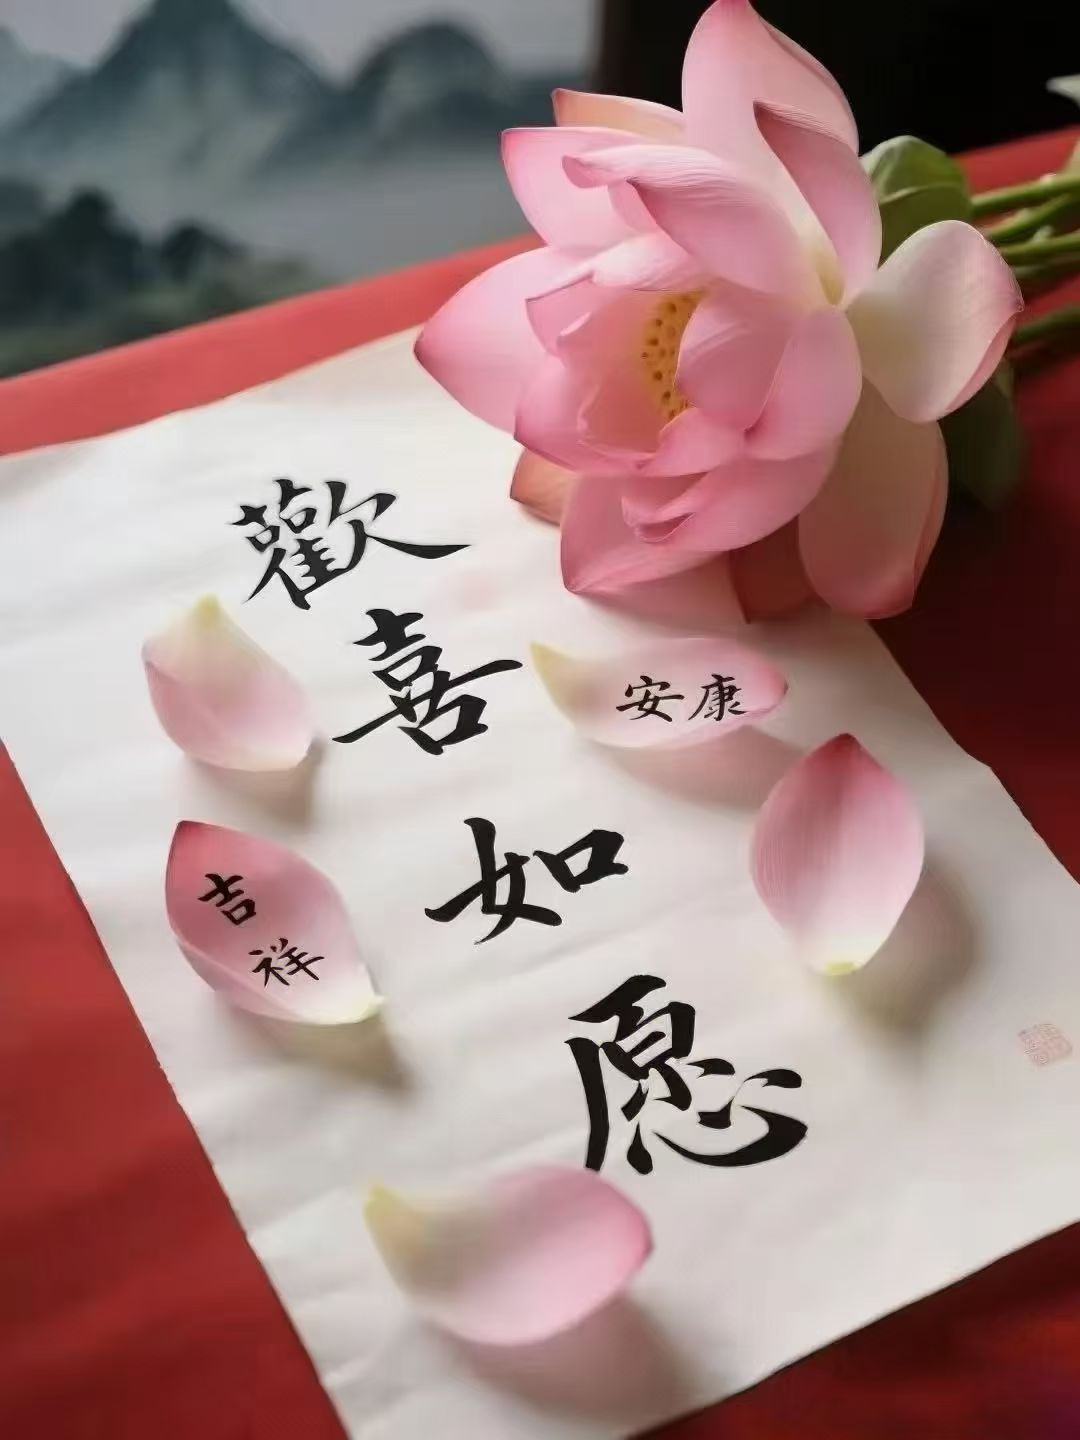 歡
喜
如
愿
安康
吉
祥